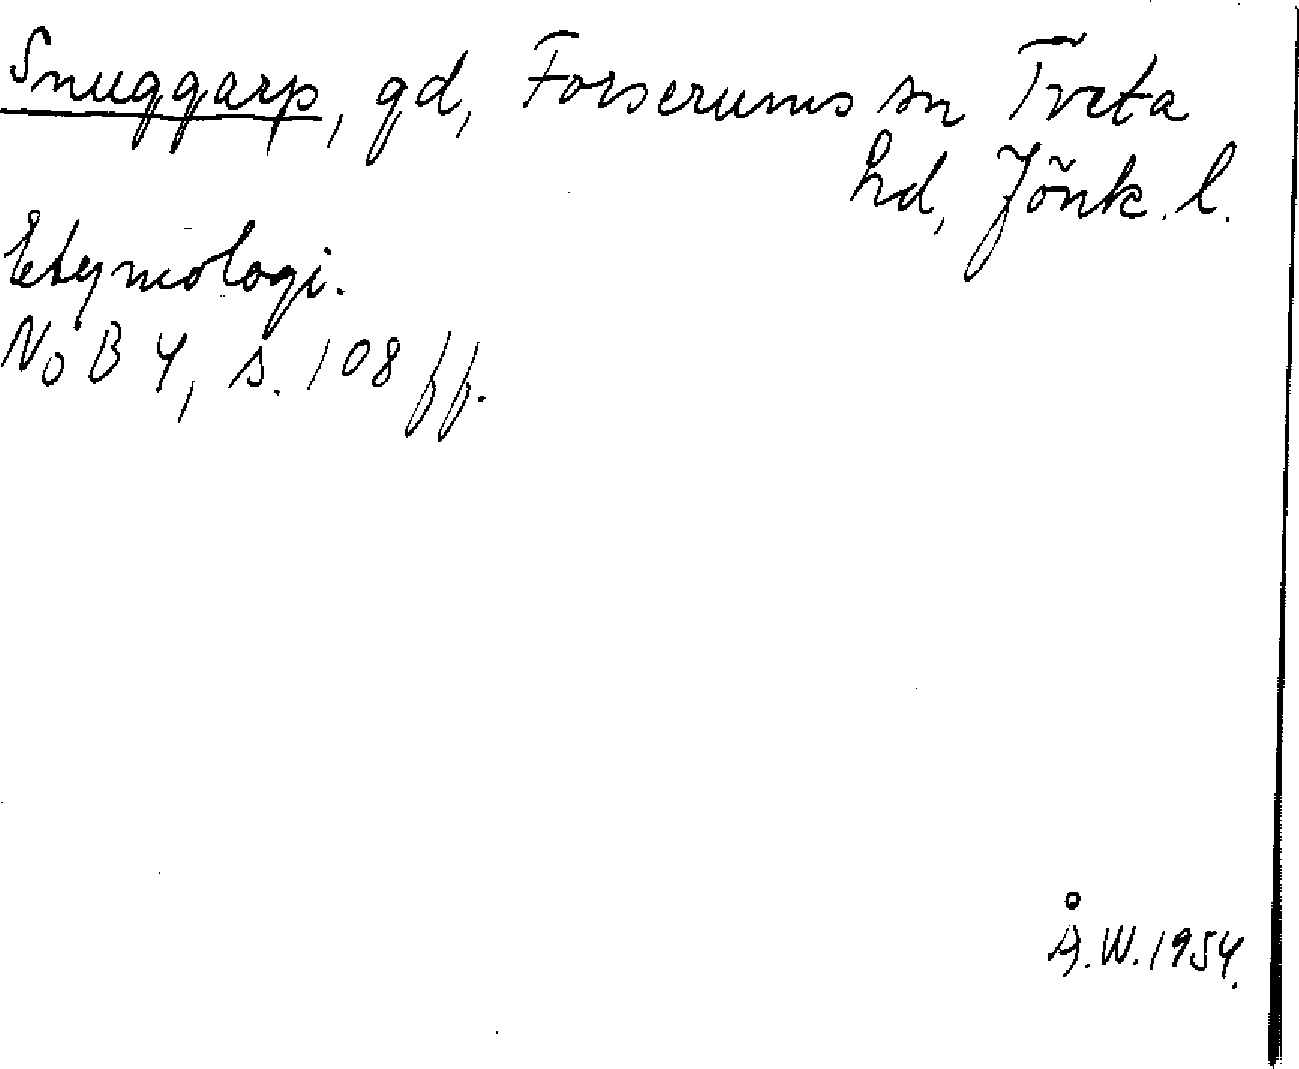 Snuggarp, gd, Forserums sn Tveta
hd, Jönk. l.
Etymologi.
NoB 4, s. 108 ff.
Å.W. 1954.